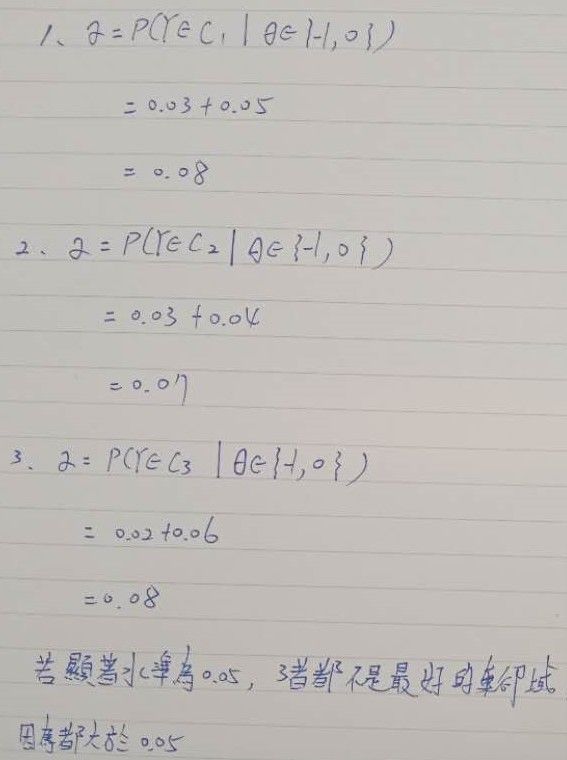 1、α = P(Y∈C₁ | θ∈{-1,0})
= 0.03 + 0.05
= 0.08
2、α = P(Y∈C₂ | θ∈{-1,0})
= 0.03 + 0.04
= 0.07
3、α = P(Y∈C₃ | θ∈{-1,0})
= 0.02 + 0.06
= 0.08
若顯著水準為0.05, 3者都不是最好的棄卻域
因為都大於 0.05